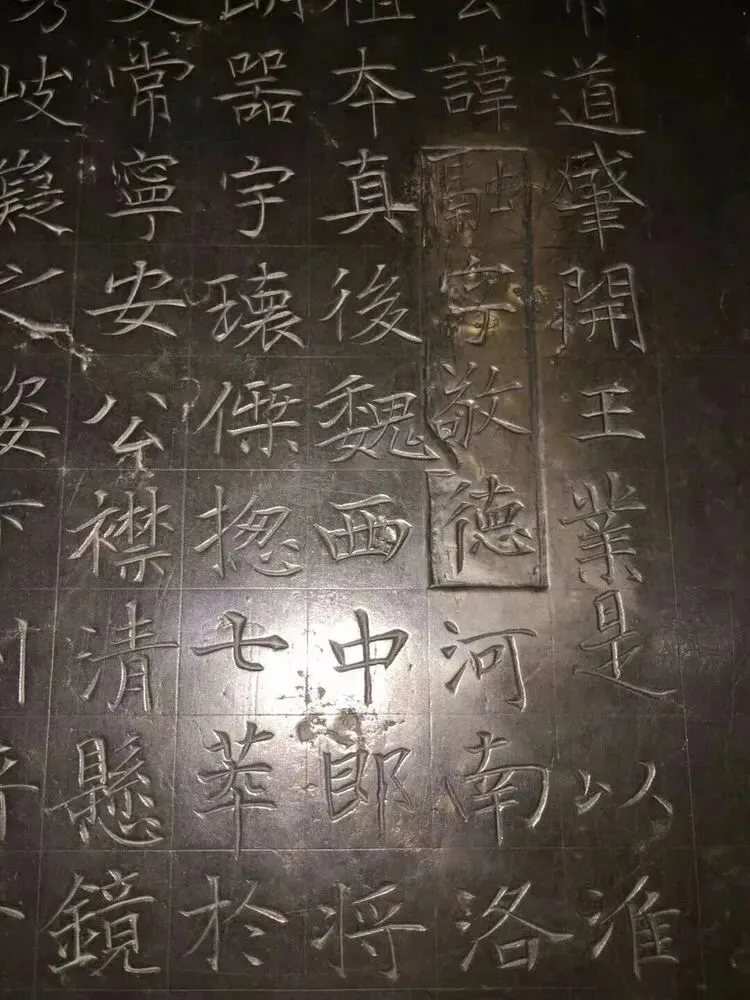 道肇開王業是以淮
公諱融字敬德河南洛
祖夲真後魏西中郎将
器宇瓌傑揔七萃於
常寧安公襟清懸鏡
岐嶷之姿